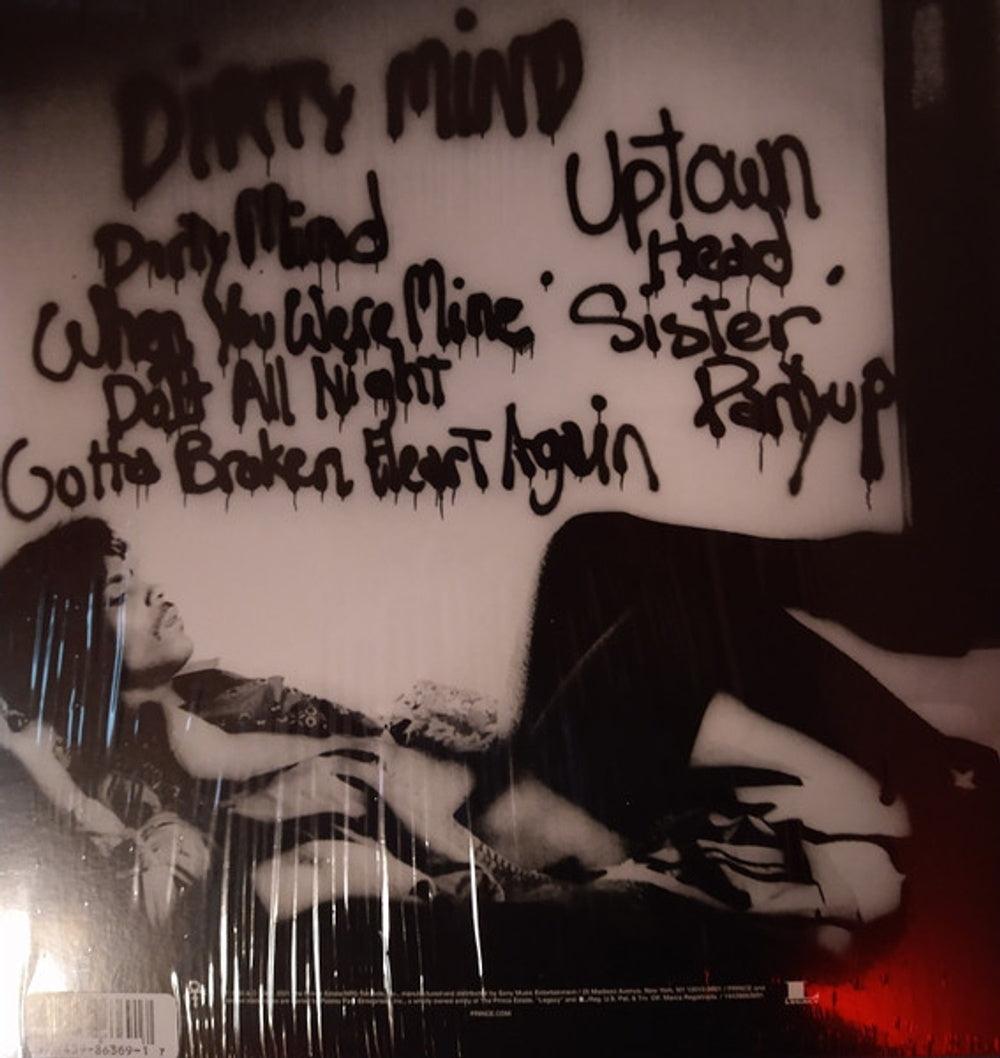 DiRTY MiND
Dirty Mind
When You Were Mine
Do It All Night
Gotta Broken Heart Again
Uptown
Head
Sister
Partyup
manufactured and distributed by Sony Music Entertainment / 25 Madison Avenue, New York, NY
a wholly owned entity of The Prince Estate. "Legacy" and Reg. U.S. Pat. & Tm. Off. Marca Registrada.
PRINCE.COM
LEGACY
86369-1 7